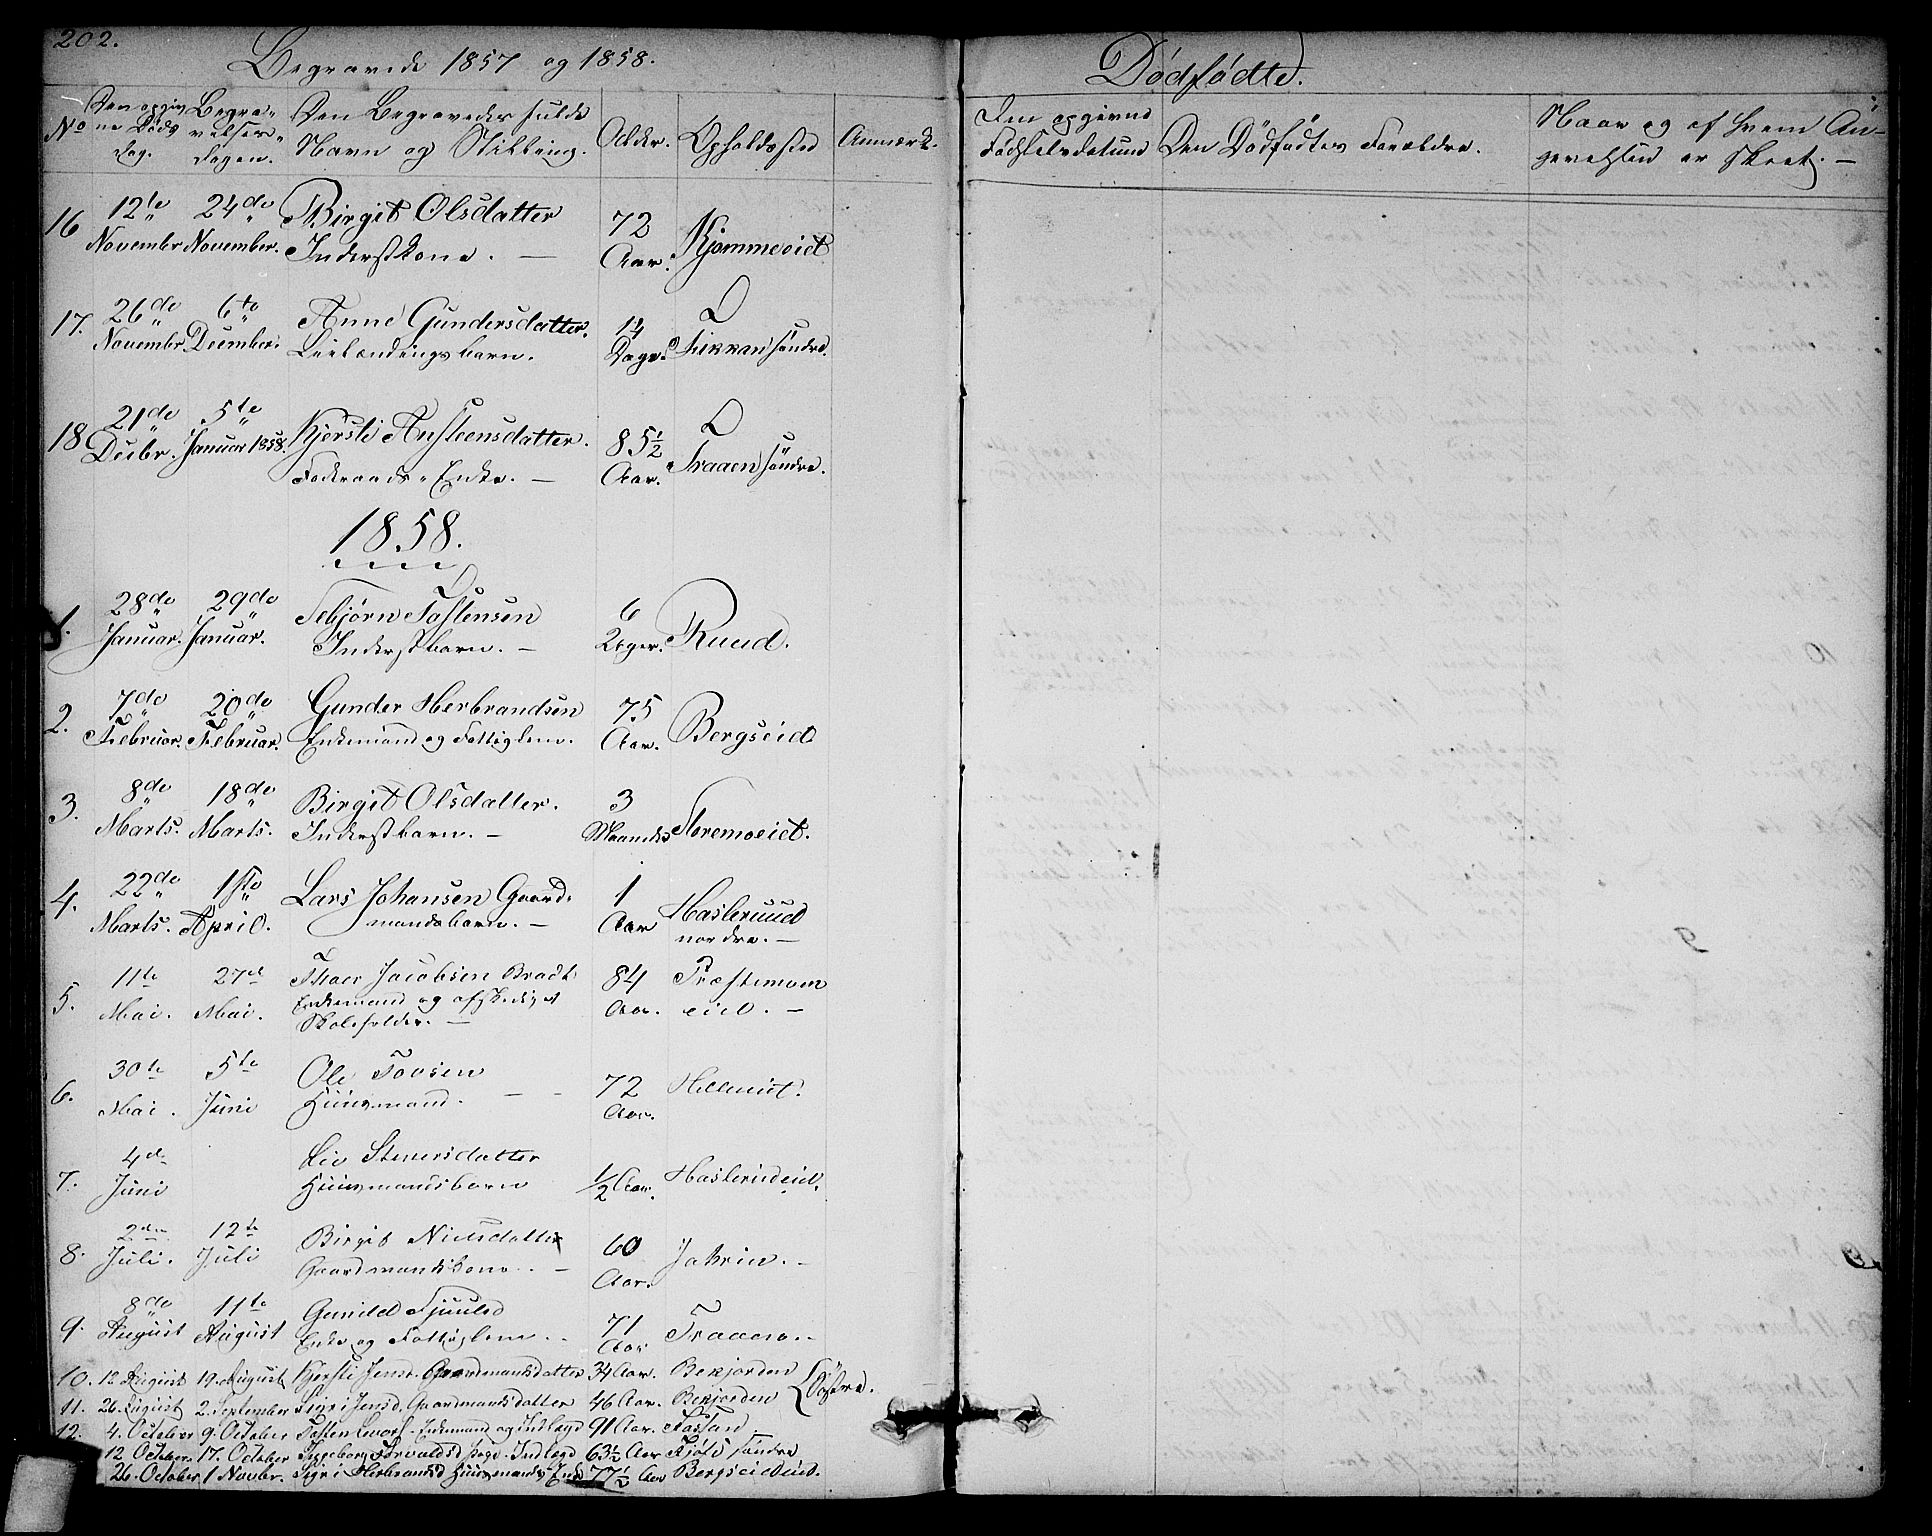 202.
Begravede 1857 og 1858.
No
Den opgiv
ne Døds
dag.
Begra-
velses-
dagen.
Den Begravedes fulde
Navn og Stilling.
Alder.
Opholdssted
Anmerk.
16
12te Novembr
24de November.
Birgit Olsdatter
Inderstkone. —
72 Aar.
Kjømmeeiet
17.
26de Novembr
6te December.
Anne Gundersdatter.
Leilændingsbarn.
14 Dage.
søndre.
18
21de Decbr.
5te Januar 1858.
Kjersti Østeensdatter.
Føderaads-Enke. —
85½ Aar.
Traaen søndre.
1858.
1.
28de Januar.
29de Januar.
Tebjørn Tostensen
Inderstbarn. —
6 Uger.
Ruud.
2.
7de Februar.
20de Februar.
Gunder Herbrandsen
Enkemand og Fattiglem.
75 Aar.
Bergseid
3.
8de Marts.
18de Marts.
Birgit Olsdatter.
Inderstbarn. —
3 Maaneder
Foremoeiet.
4.
22de Marts.
1ste April.
Lars Johansen Gaard-
mandsbarn. —
1 Aar
Hasleruud
nordre. —
5.
11te Mai.
27de Mai.
Thoer Jacobsen Bradt
Enkemand og afskediget
Skoleholder. —
84 Aar.
Præstemoen
eiet. —
6.
30te Mai.
5te Juni
Ole Tovsen
Huusmand. — -
72 Aar.
7.
4de Juni
Liv Steenersdatter
Huusmandsbarn
½ Aar.
Haslerudeiet.
8.
2den Juli.
12te Juli
Birgit Nielsdatter
Gaardmandskone. —
60 Aar.
Jahren. -
9.
8de August
11te August
Gunild
Enke og Fattiglem. -
71 Aar
Traaen. -
10.
12 August
19. August
Kjersti Jensd. Gaardmandsdatter
34 Aar.
Bekjorden
11.
26. August
2. September
Sigri Jensd. Gaardmandsdatter
46 Aar.
Bekjorden
Søstre.
12.
4. October
9. October
Tosten Enkemand og Indlægd
91 Aar.
12 October
17. October
Ingeborg Torvaldsd Pige. Indlægd
63½ Aar
søndre
26. October
1 Novbr.
Sigri Herbrandsd Huusmands Enke
77½ Aar
Bergseideiet.
Dødfødte.
Den opgivne
Fødselsdatum
Den Dødfødtes Forældre.
Naar og af hvem An-
givelsen er skeet. —